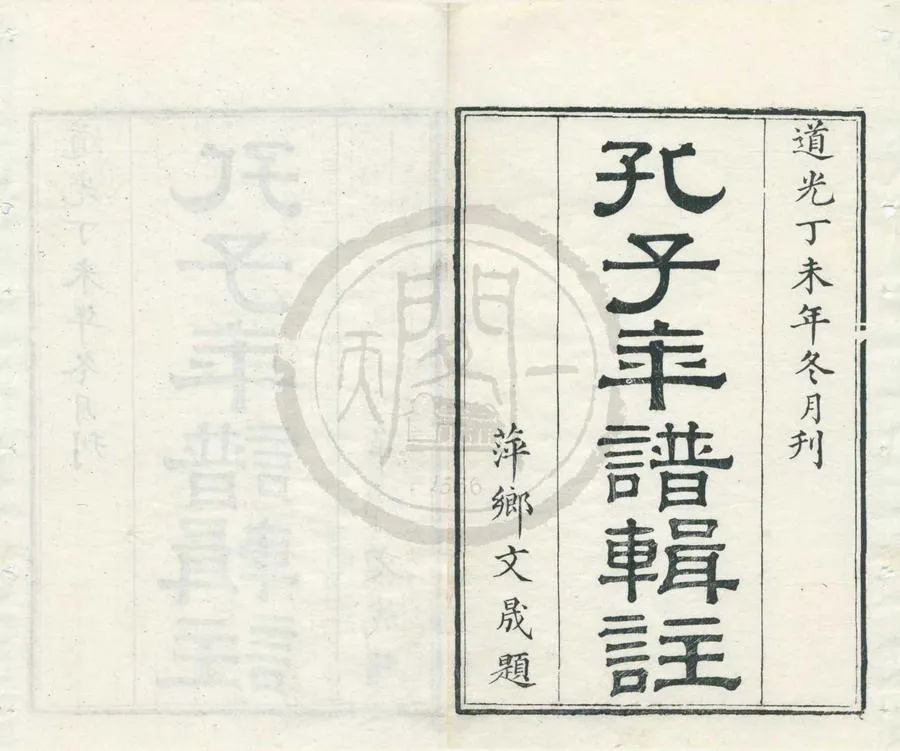 道光丁未年冬月刊
孔子年譜輯註
萍鄉文晟題
天一閣
1566